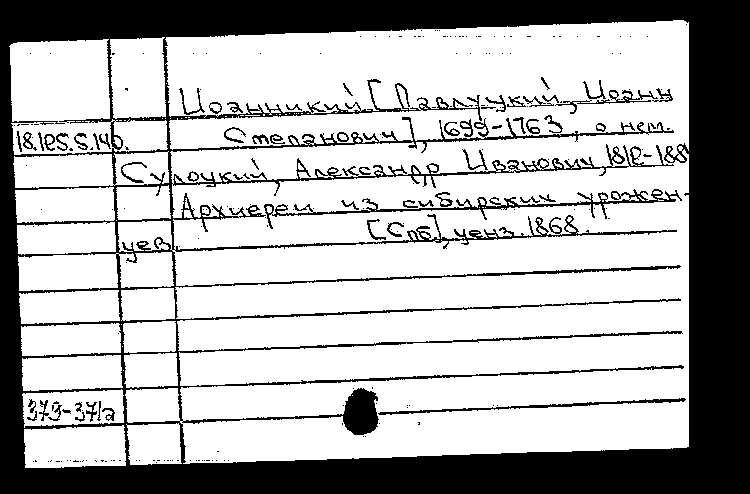 Иоанникий [Павлуцкий, Иоанн
18.125.5.140. Степанович], 1699-1763, о нем.
Сулоцкий, Александр Иванович, 1812-188
Архиереи из сибирских урожен-
цев. [Спб], ценз. 1868.